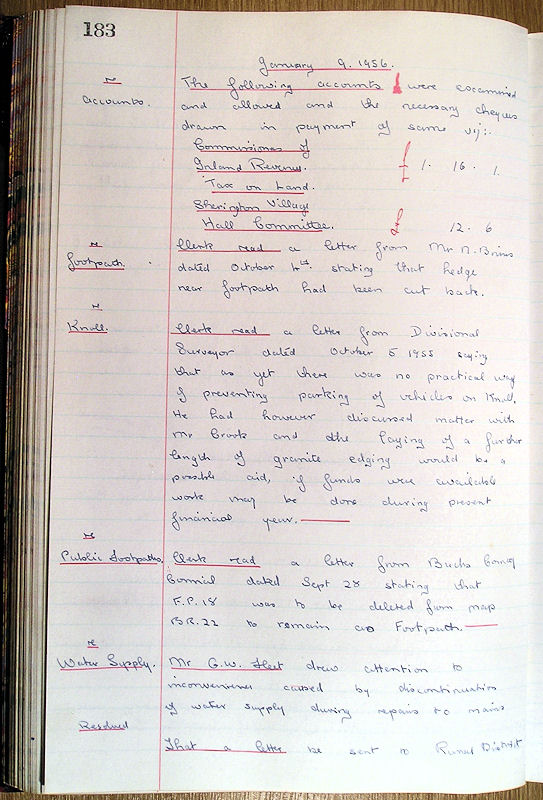 183
January 9. 1956.
~
accounts.
The following accounts were examined
and allowed and the necessary cheques
drawn in payment of same viz:.
Commissioner of
Inland Revenue. £ 1. 16. 1.
Tax on Land.
Sherington Village
Hall Committee. 12. 6
re
footpath. Clerk read a letter from Mr N. Brims
dated October 4th. stating that hedge
near footpath had been cut back.
re
Knoll. Clerk read a letter from Divisional
Surveyor dated October 5 1955 saying
that as yet there was no practical way
of preventing parking of vehicles on Knoll.
He had however discussed matter with
Mr Crook and the laying of a further
length of granite edging would be a
possible aid, if funds were available
work may be done during present
financial year.
re
Public Footpaths. Clerk read a letter from Bucks County
Council dated Sept 28 stating that
F.P.18 was to be deleted from map
BR.22 to remain as Footpath.
re
Water Supply. Mr G.W. drew attention to
inconvenience caused by discontinuation
of water supply during repairs to mains
Resolved
That a letter be sent to Rural District